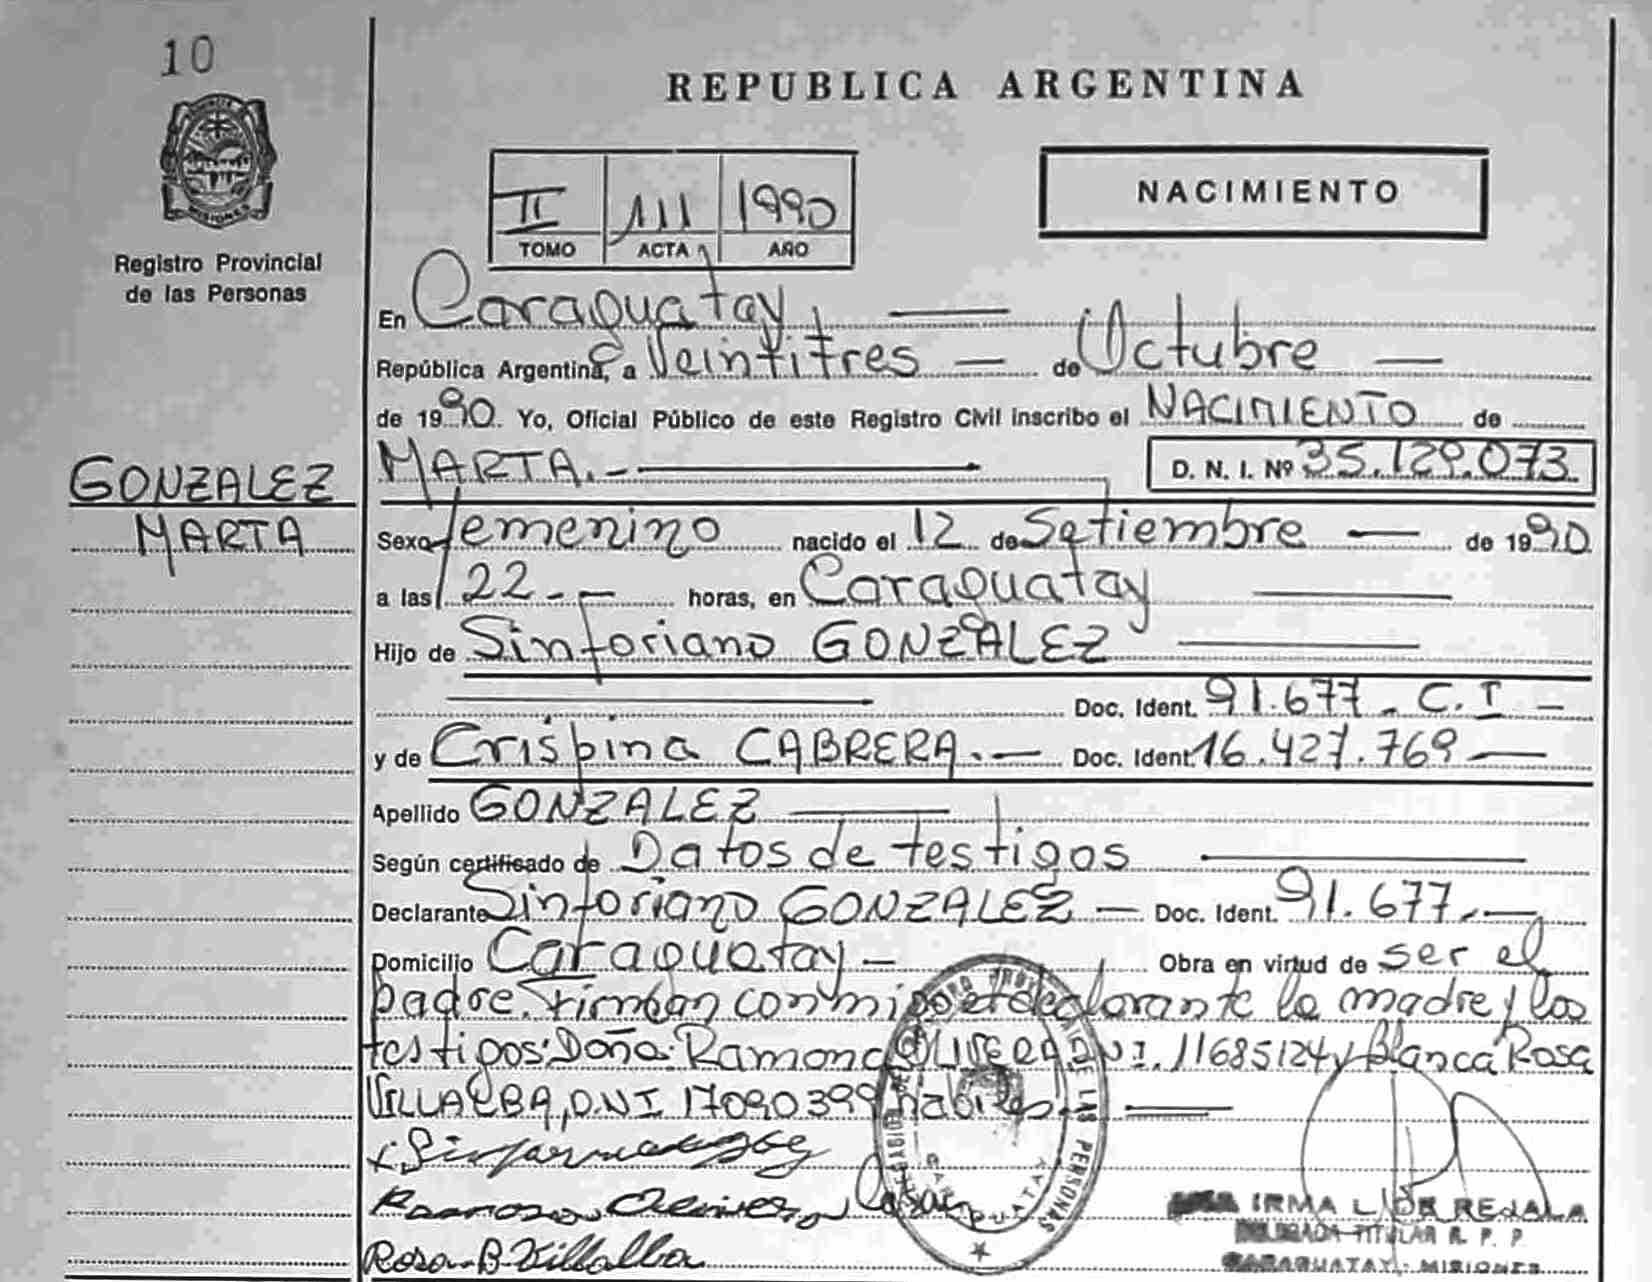 10
REPUBLICA ARGENTINA
NACIMIENTO
II 111 1990
TOMO ACTA AÑO
MISIONES
Registro Provincial
de las Personas
En Caraguatay
República Argentina, a Veintitres de Octubre
de 1990. Yo, Oficial Público de este Registro Civil inscribo el NACIMIENTO de
GONZALEZ
MARTA
MARTA.-
D. N. I. Nº 35.129.073
Sexo femenino nacido el 12 de Setiembre de 1990
a las 22 horas, en Caraguatay
Hijo de Sinforiano GONZALEZ
Doc. Ident. 91.677. C.I
y de Crispina CABRERA.- Doc. Ident. 16.427.769
Apellido GONZALEZ
Según certificado de Datos de testigos
Declarante Sinforiano GONZALEZ Doc. Ident. 91.677.
Domicilio Caraguatay Obra en virtud de ser el
padre. Firman conmigo el declarante la madre y los
testigos: Doña: Ramona D.N.I. 11685124 y Blanca Rosa
VILLALBA, D.N.I 17090399 habiles
Rosa B Villalba
IRMA REJALA
DELEGADA TITULAR R. P. P
CARAGUATAY - MISIONES